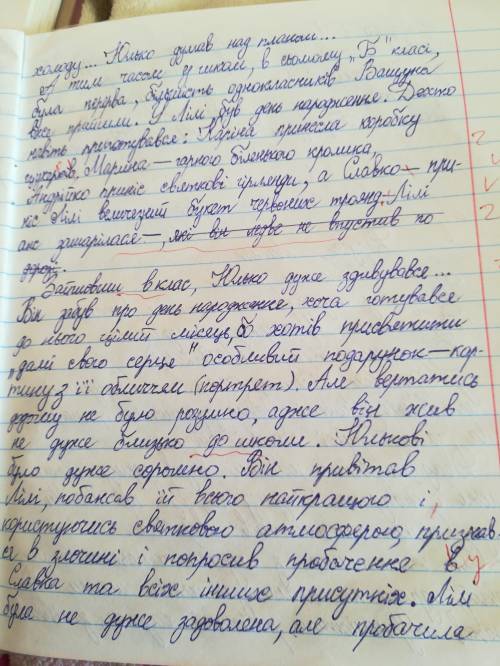 холоду... Юлько думав над планом...
А тим часом у школі, в сьомому „Б" класі,
була перерва, більшість однокласників Ващука
вже прийшли. У Лілі був день народження. Дехто
навіть приготувався: Каріна принесла коробку
цукерків, Марина — гарного біленького кролика,
Андрійко приніс святкові гірлянди, а Славко — при-
ніс Лілі величезний букет червоних троянд. Лілі
аж зашарілася —, які він ледве не впустив по
дорозі.
Зайшовши в клас, Юлько дуже здивувався...
Він забув про день народження, хоча готувався
до нього цілий місяць, бо хотів присвятити
„дамі свого серця" особливий подарунок — кар-
тину з її обличчям (портрет). Але вертатись
додому не було розумно, адже він жив
не дуже близько до школи. Юлькові
було дуже соромно. Він привітав
Лілі, побажав їй всього найкращого і,
користуючись святковою атмосферою, признав-
ся в злочині і попросив пробачення в у
Славка та всіх інших присутніх. Лілі
була не дуже задоволена, але пробачила